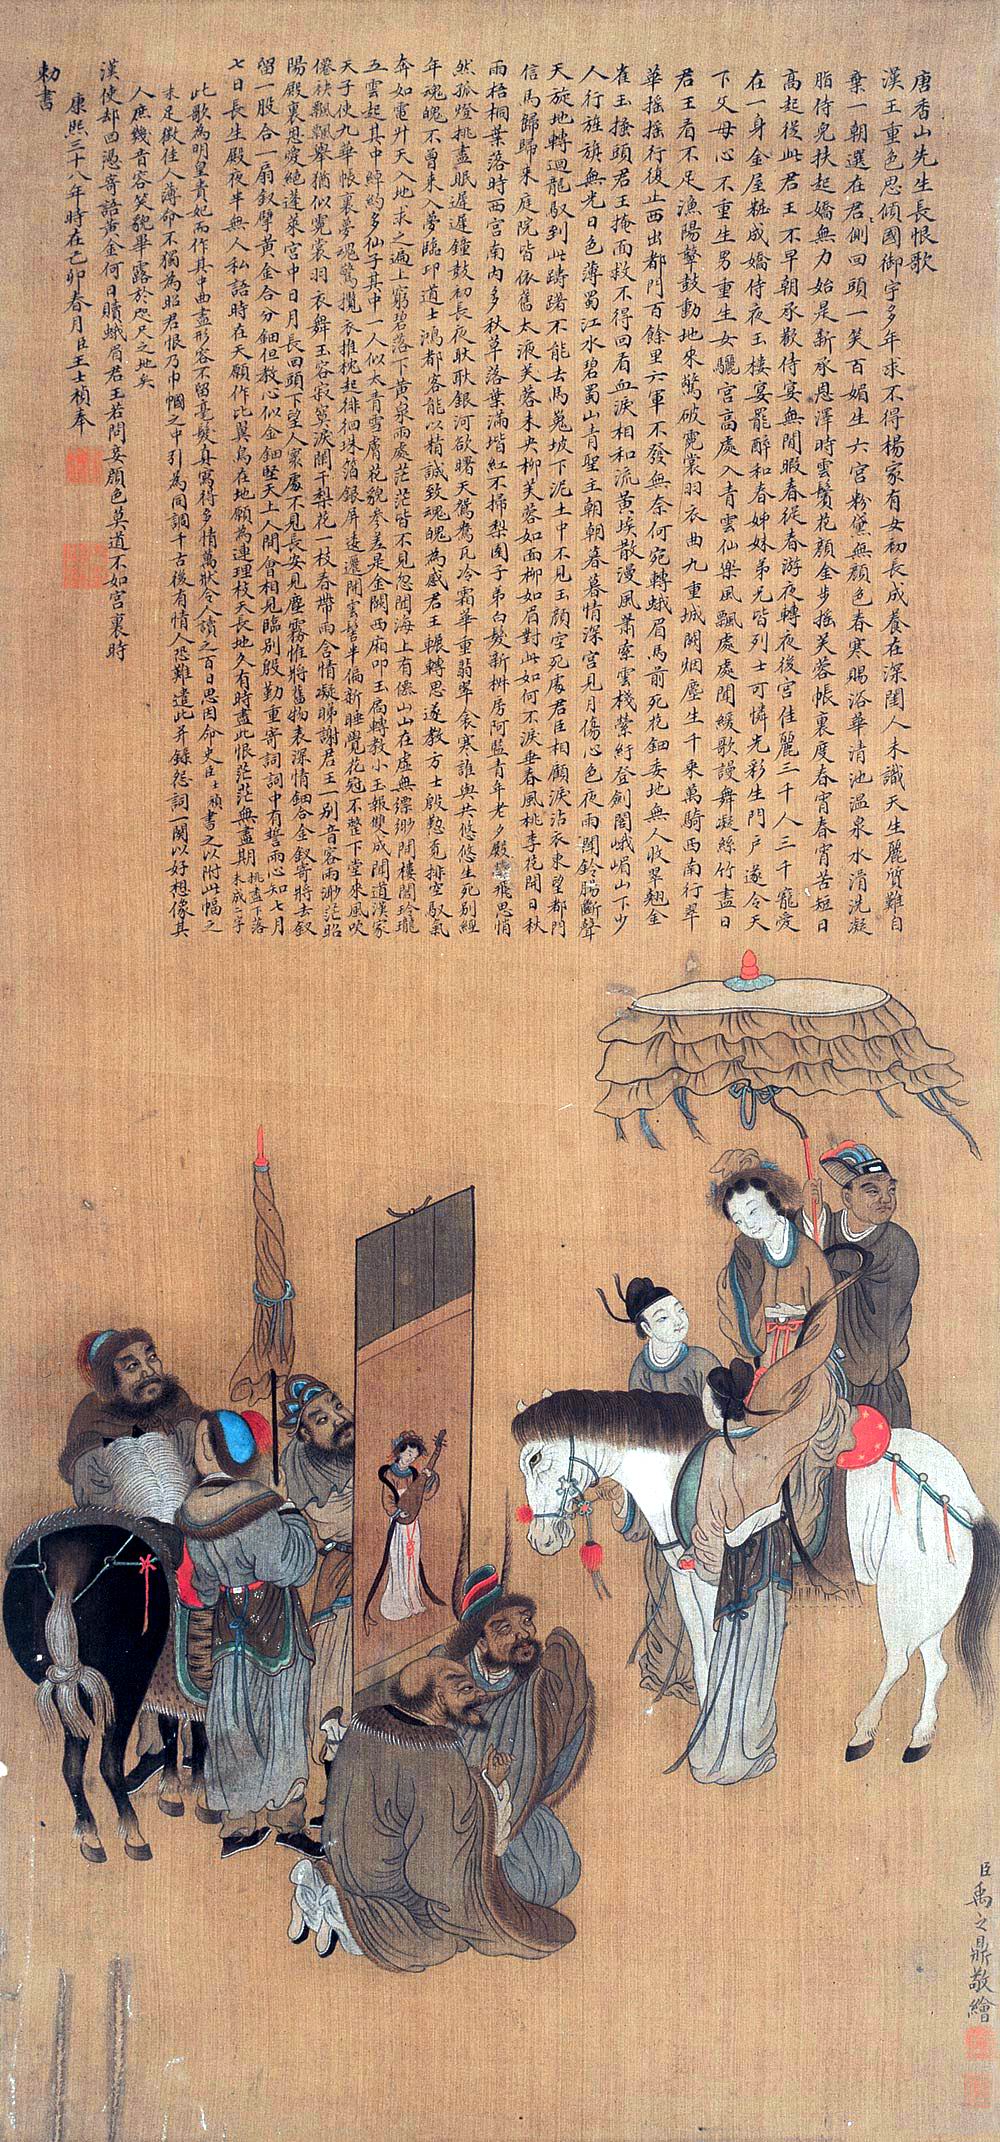 唐香山先生長恨歌
漢王重色思傾國御宇多年求不得楊家有女初長成養在深閨人未識天生麗質難自
棄一朝選在君側回頭一笑百媚生六宮粉黛無顏色春寒賜浴華清池溫泉水滑洗凝
脂侍兒扶起嬌無力始是新承恩澤時雲鬢花顏金步搖芙蓉帳裏度春宵春宵苦短日
高起從此君王不早朝承歡侍宴無閒暇春從春游夜轉夜後宮佳麗三千人三千寵愛
在一身金屋粧成嬌侍夜玉樓宴罷醉和春姊妹弟兄皆列士可憐光彩生門戶遂令天
下父母心不重生男重生女驪宮高處入青雲仙樂風飄處處聞緩歌謾舞凝絲竹盡日
君王看不足漁陽鼙鼓動地來驚破霓裳羽衣曲九重城闕烟塵生千乘萬騎西南行翠
華搖搖行復止西出都門百餘里六軍不發無奈何宛轉蛾眉馬前死花鈿委地無人收翠翹金
雀玉搔頭君王掩面救不得回看血淚相和流黃埃散漫風蕭索雲棧縈紆登劍閣峨嵋山下少
人行旌旗無光日色薄蜀江水碧蜀山青聖主朝朝暮暮情深宮見月傷心色夜雨聞鈴腸斷聲
天旋地轉迴龍馭到此躊躇不能去馬嵬坡下泥土中不見玉顏空死處君臣相顧淚沾衣東望都門
信馬歸歸來庭院皆依舊太液芙蓉未央柳芙蓉如面柳如眉對此如何不淚垂春風桃李花開日秋
雨梧桐葉落時西宮南內多秋草落葉滿堦紅不掃梨園子弟白髮新椒房阿監青年老夕殿螢飛思悄
然孤燈挑盡眠遲遲鐘鼓初長夜耿耿銀河欲曙天鴛鴦瓦冷霜華重翡翠衾寒誰與共悠悠生死別經
年魂魄不曾來入夢臨邛道士鴻都客能以精誠致魂魄為感君王輾轉思遂教方士殷懃覓排空馭氣
奔如電升天入地求之遍上窮碧落下黃泉兩處茫茫皆不見忽聞海上有僊山山在虛無縹緲間樓閣玲瓏
五雲起其中綽約多仙子其中一人似太青雪膚花貌參差是金闕西廂叩玉扃轉教小玉報雙成聞道漢家
天子使九華帳裏夢魂驚攬衣推枕起徘徊珠箔銀屏遠邐開雲髻半偏新睡覺花冠不整下堂來風吹
僊袂飄飄舉猶似霓裳羽衣舞玉容寂寞淚闌干梨花一枝春帶雨含情凝睇謝君王一別音容兩渺茫昭
陽殿裏恩愛絕蓬萊宮中日月長回頭下望人寰處不見長安見塵霧惟將舊物表深情鈿合金釵寄將去釵
留一股合一扇釵擘黃金合分鈿但教心似金鈿堅天上人間會相見臨別殷勤重寄詞詞中有誓兩心知七月
七日長生殿夜半無人私語時在天願作比翼鳥在地願為連理枝天長地久有時盡此恨茫茫無盡期 挑盡下落未成二字
此歌為明皇貴妃而作其中曲盡形容不留毫髮真寫得多情萬狀令人讀之百日思因命史臣士禎書之以附此幅之
末足徵佳人薄命不獨為昭君恨乃巾幗之中引為同調千古後有情人恐難遣此并錄怨詞一闋以好想像其
人庶幾昔容笑貌畢露於咫尺之地矣
漢使却回憑寄語黃金何日贖蛾眉君王若問妾顏色莫道不如宮裏時
康熙三十八年時在己卯春月臣王士禎奉
勅書
臣禹之鼎敬繪